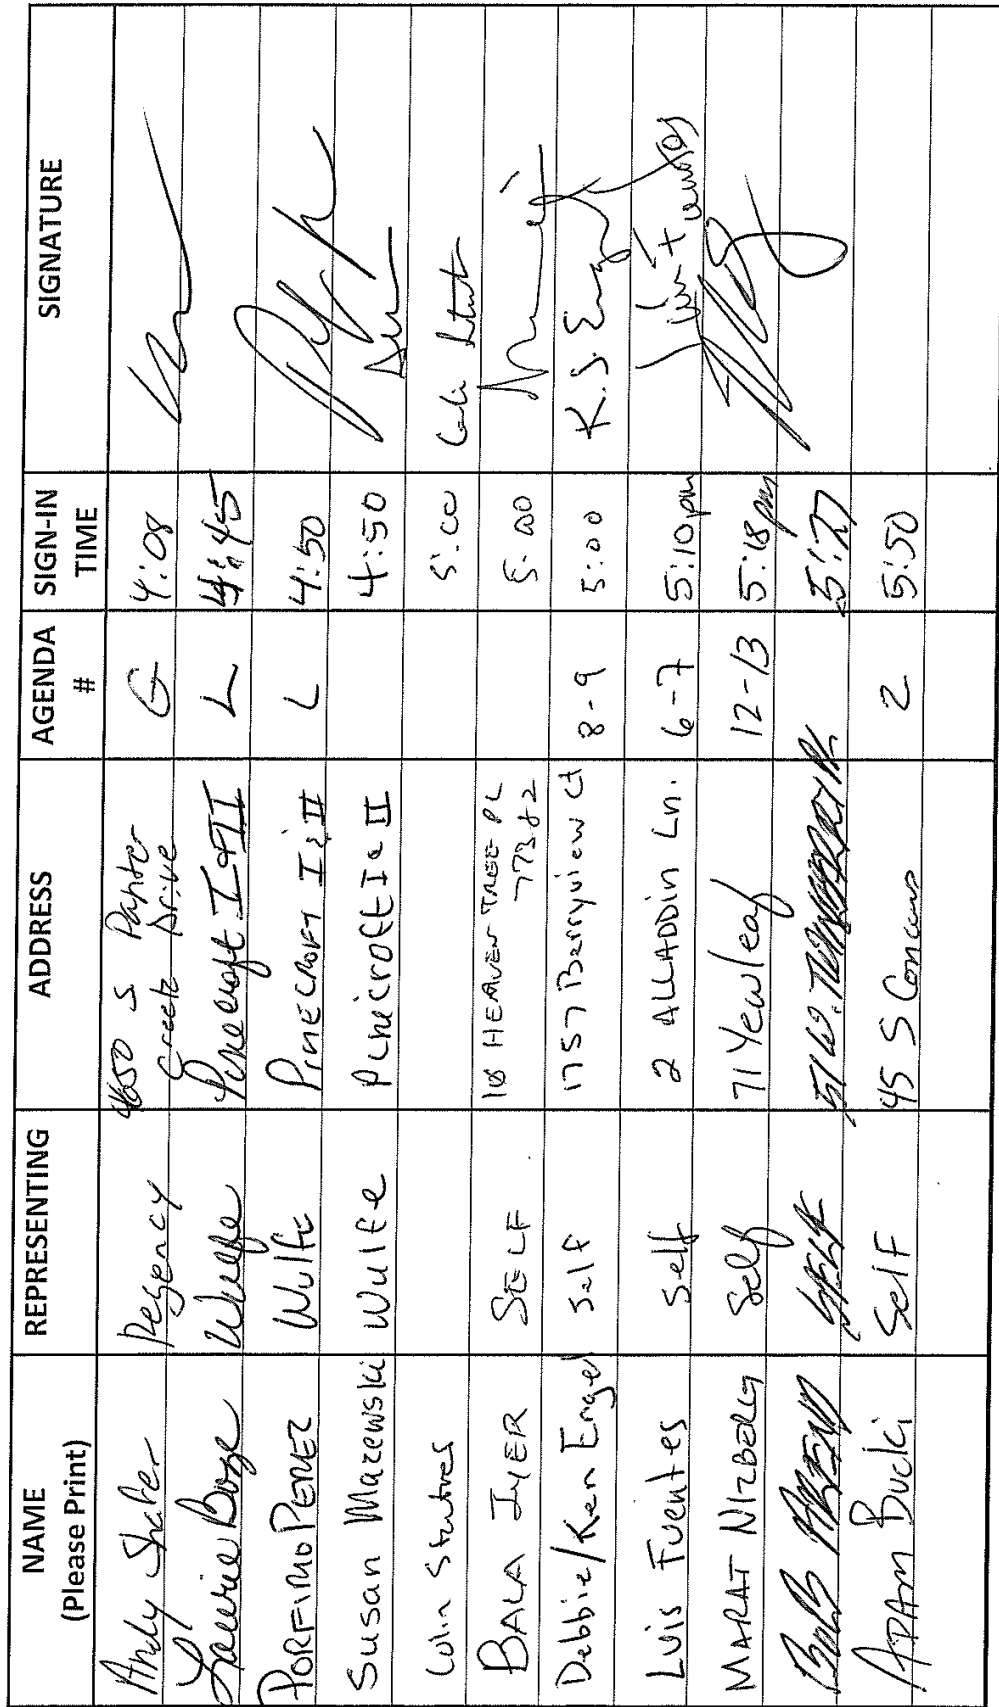 NAME (Please Print) REPRESENTING ADDRESS AGENDA # SIGN-IN TIME SIGNATURE
Andy Shafer Regency S Panther Creek Drive G 4:08
Laurie Boze Wulfe Pinecroft I & II L 4:45
PORFIRIO PEREZ Wulfe PINECROFT I & II L 4:50
Susan Mazewski Wulfe Pinecroft I & II 4:50
Colin 5:00
BALA IYER SELF 10 HEAVEN TREE PL 77382 5:00
Debbie/Ken Engel Self 17 S 7 Berryview Ct 8-9 5:00 K.S. Engel
Luis Fuentes Self 2 ALLADDin Ln. 6-7 5:10pm
MARAT NIZBERG Self 71 Yewleaf 12-13 5:18pm
SELF 5:27
ADAM Bucki Self 45 S Concord 2 5:50